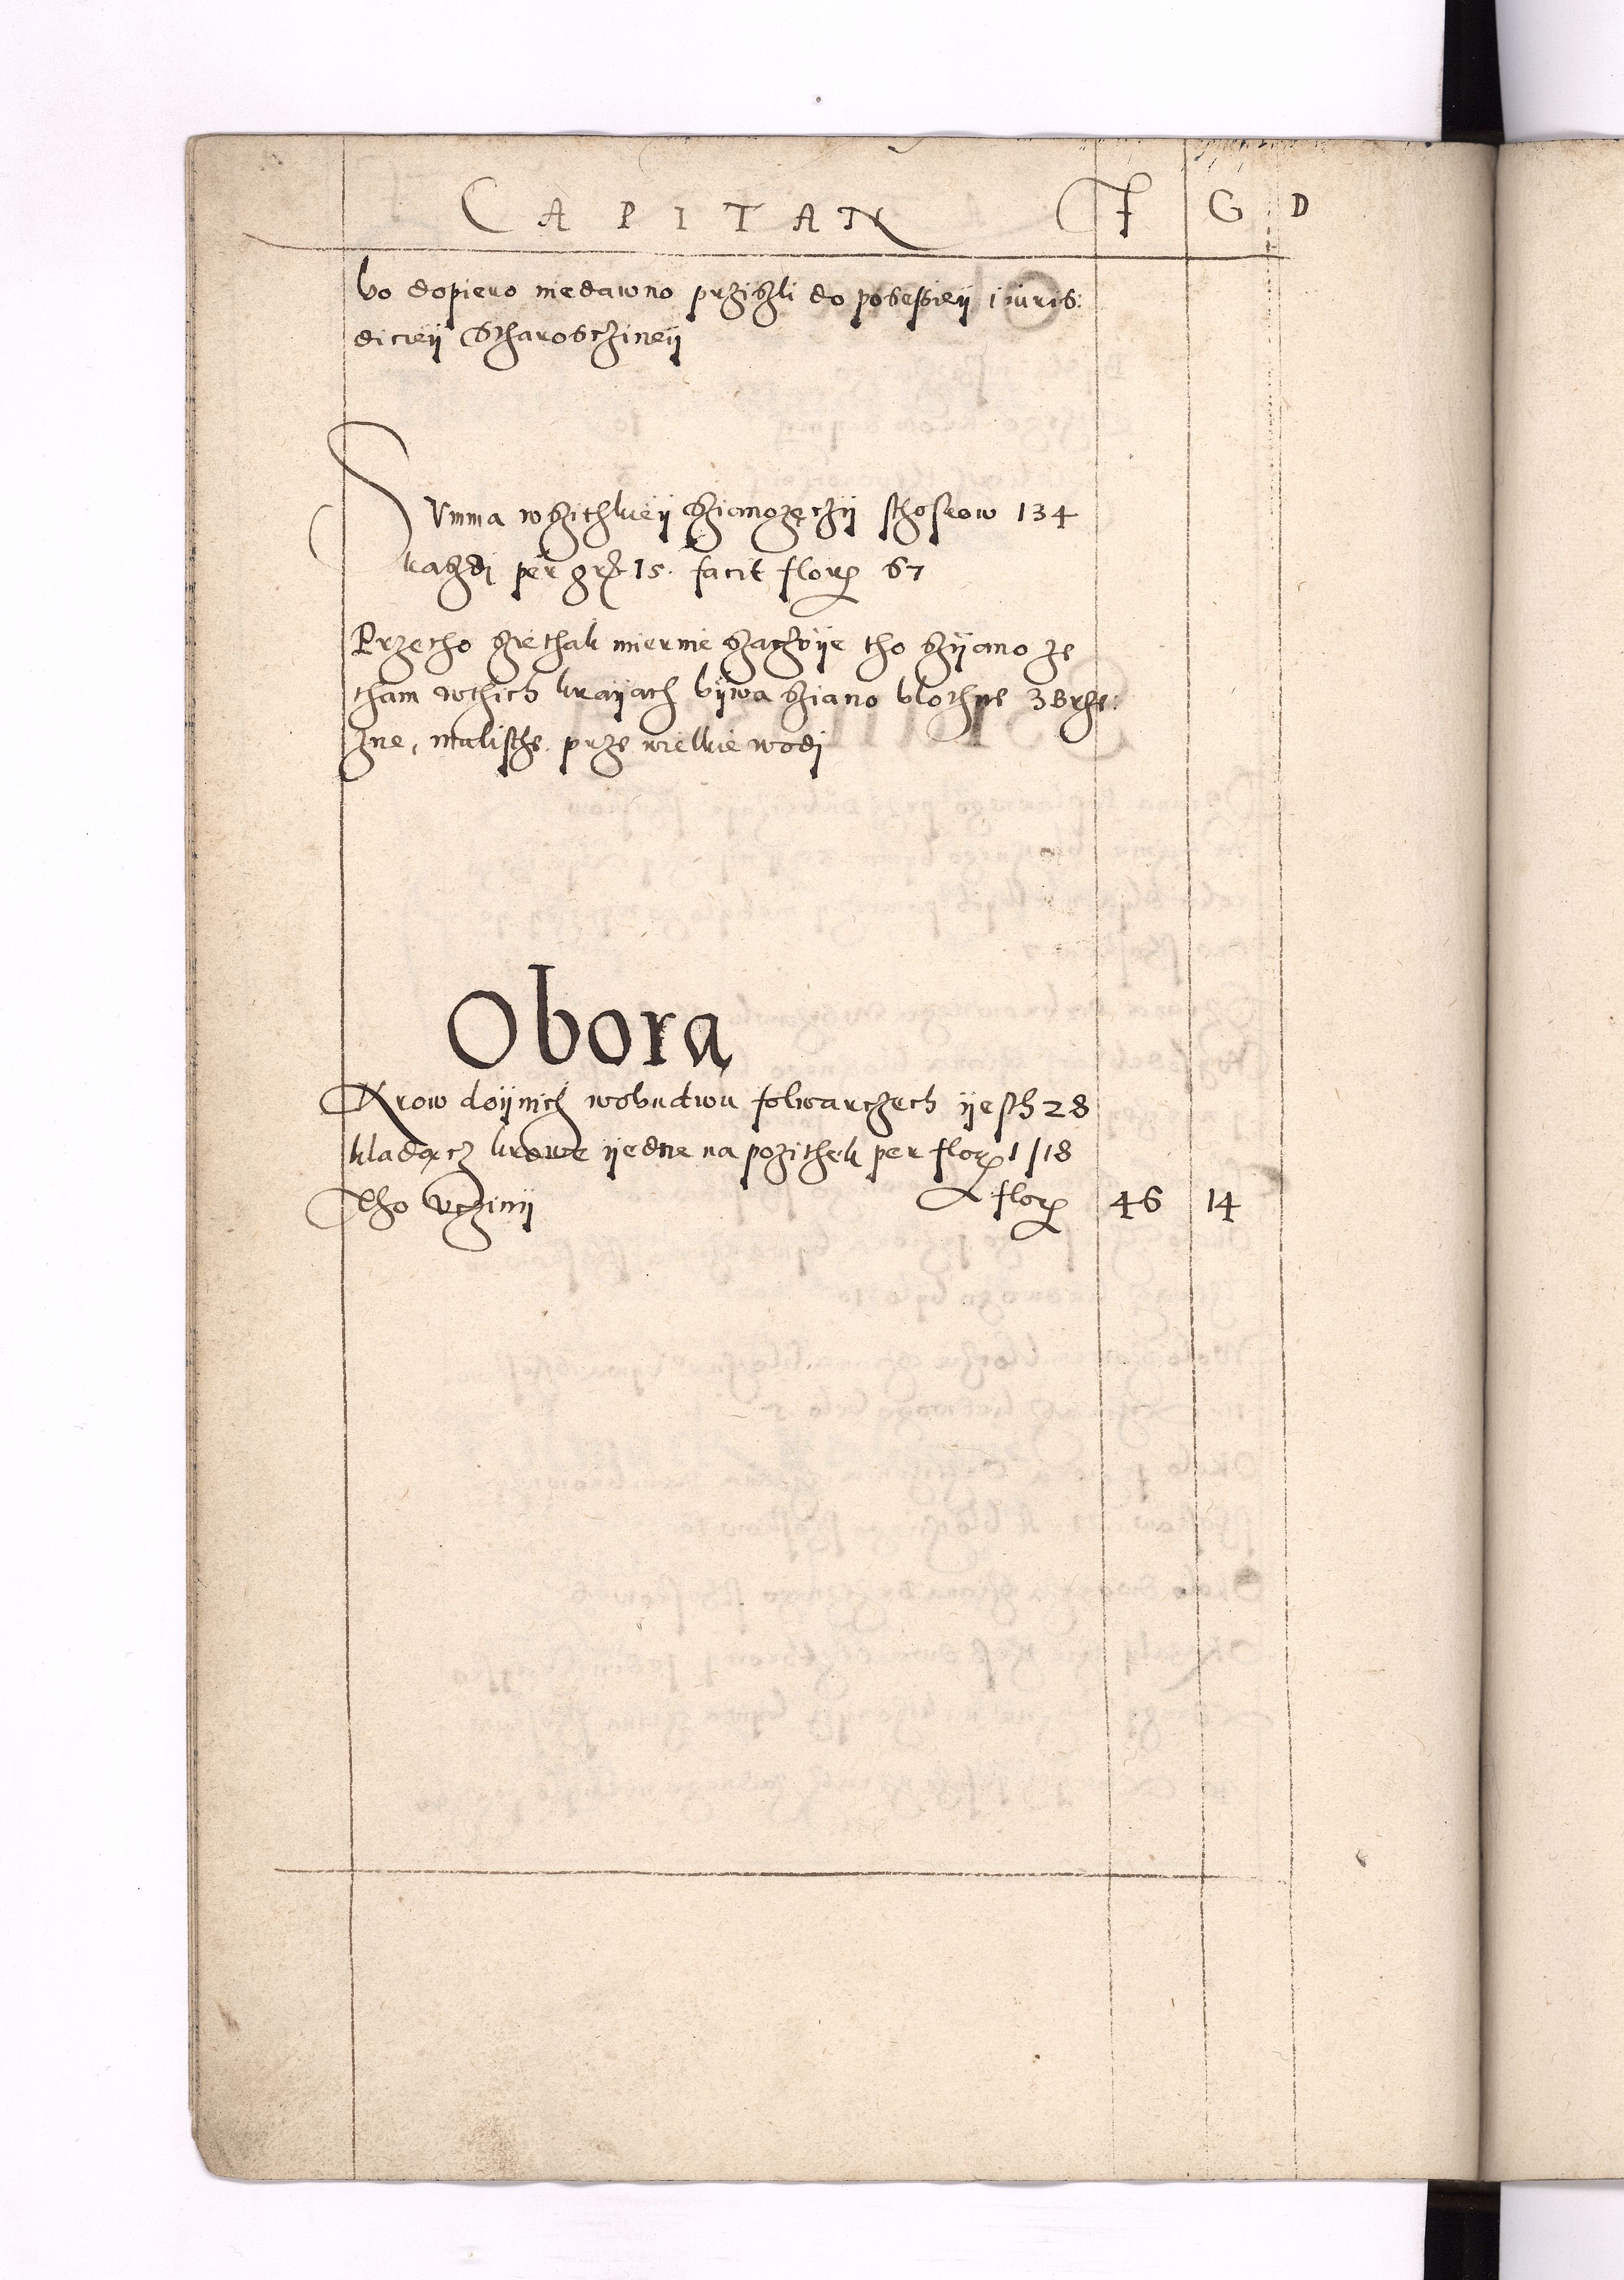 CAPITAN F G D
bo dopiero niedawno przisli do posessieÿ i iuris:
dicieÿ StharosczineÿSumma wszithkieÿ sianozęczÿ sthosrow 134
kasdi per gr 15. facit flor 67
Przetho sie thak miernie szaczuÿe tho sÿano ze
tham wthich kraÿach bÿwa siano błothne zbrze:
zne, mulisthe, prze wielkie wodi
Obora
Krow doÿnich wobudwu folwarczech ÿesth 28
kladącz krowe ÿedne na pozithek per flor 1/18
Tho vczinÿ flor 46 14